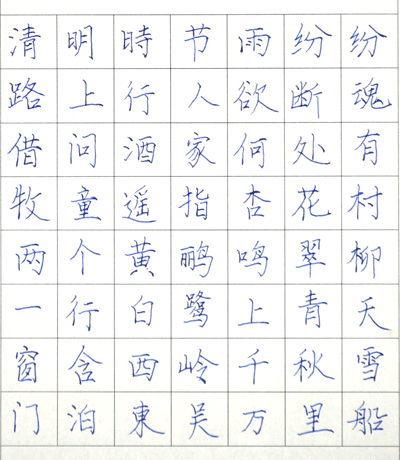 清明時节雨纷纷
路上行人欲断魂
借问酒家何处有
牧童遥指杏花村
两个黄鹂鸣翠柳
一行白鹭上青天
窗含西岭千秋雪
门泊東吴万里船